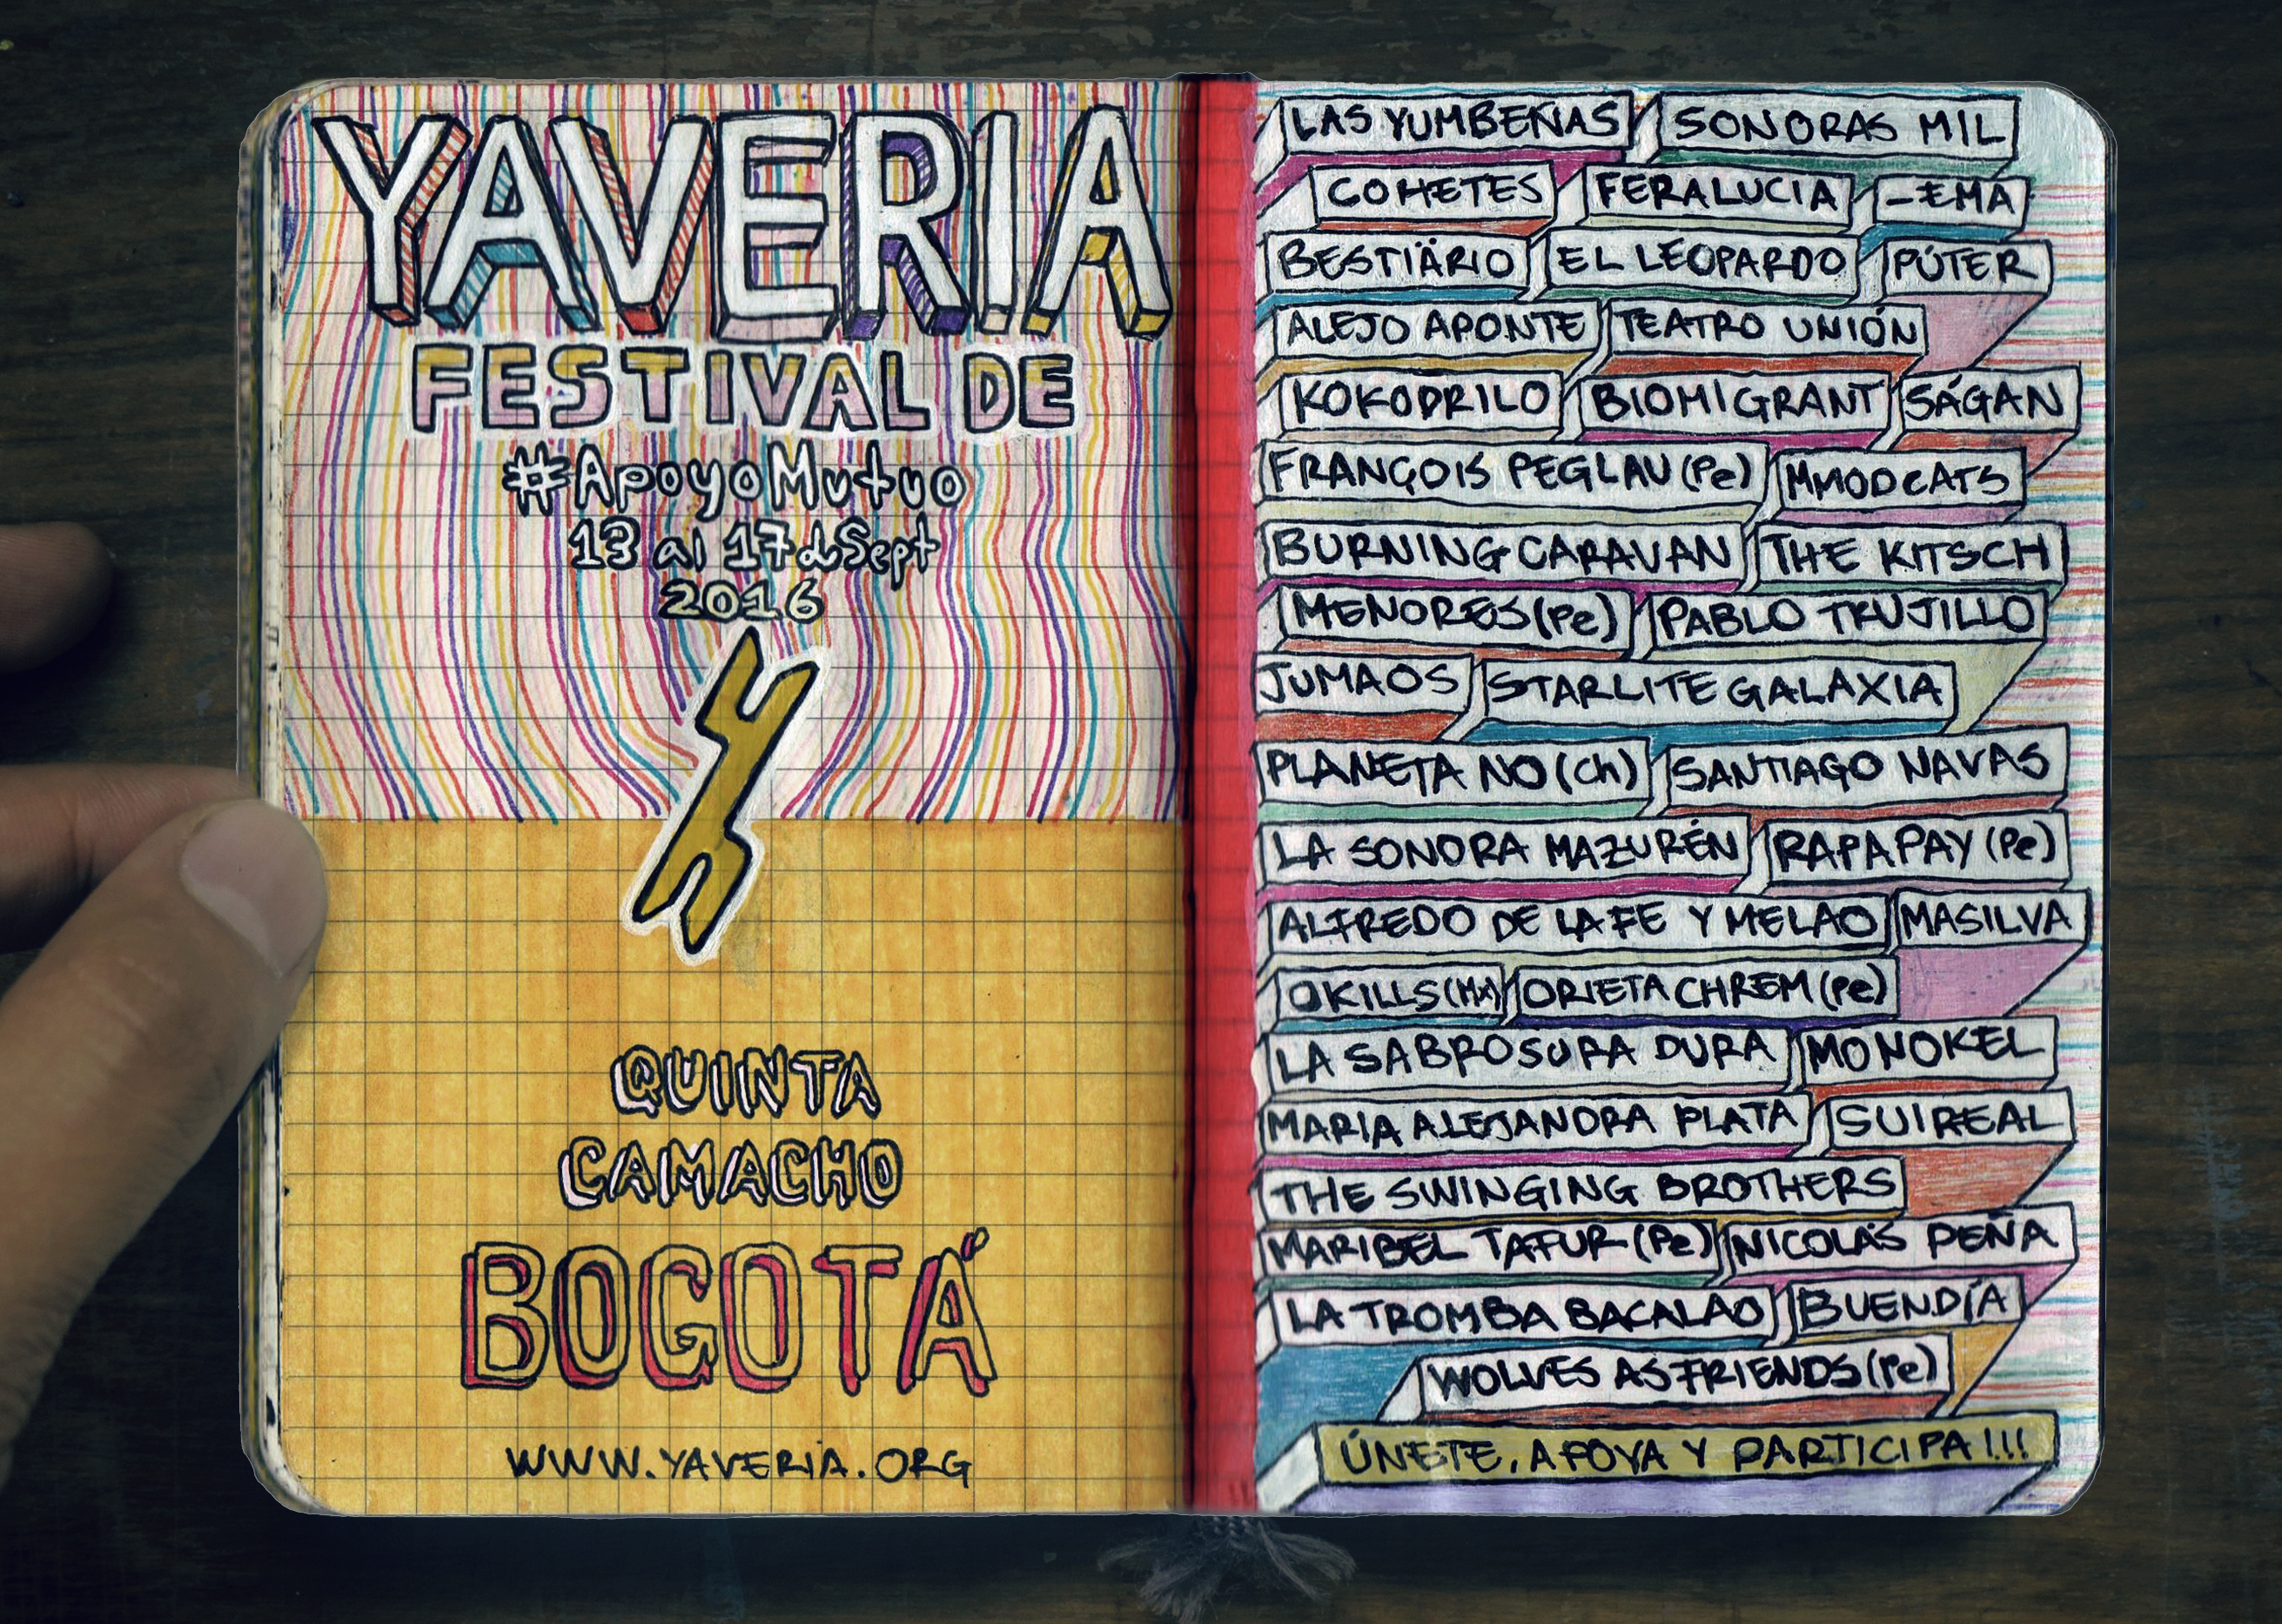 YAVERIA
FESTIVAL DE
#ApoyoMutuo
13 al 17 d Sept
2016
QUINTA
CAMACHO
BOGOTÁ
WWW.YAVERIA.ORG
LAS YUMBEÑAS SONORAS MIL
COHETES FERALUCIA -EMA
BESTIÄRIO EL LEOPARDO PÚTER
ALEJO APONTE TEATRO UNIÓN
KOKODRILO BIOMIGRANT SÁGAN
FRANÇOIS PEGLAU (Pe) MMODCATS
BURNING CARAVAN THE KITSCH
MENORES (Pe) PABLO TRUJILLO
JUMAOS STARLITE GALAXIA
PLANETA NO (Ch) SANTIAGO NAVAS
LA SONORA MAZURÉN RAPAPAY (Pe)
ALFREDO DE LA FE Y MELAO MASILVA
OKILLS (MX) ORIETA CHREM (Pe)
LA SABROSURA DURA MONOKEL
MARIA ALEJANDRA PLATA SUIREAL
THE SWINGING BROTHERS
MARIBEL TAFUR (Pe) NICOLÁS PEÑA
LA TROMBA BACALAO BUENDÍA
WOLVES AS FRIENDS (Pe)
ÚNETE, APOYA Y PARTICIPA!!!